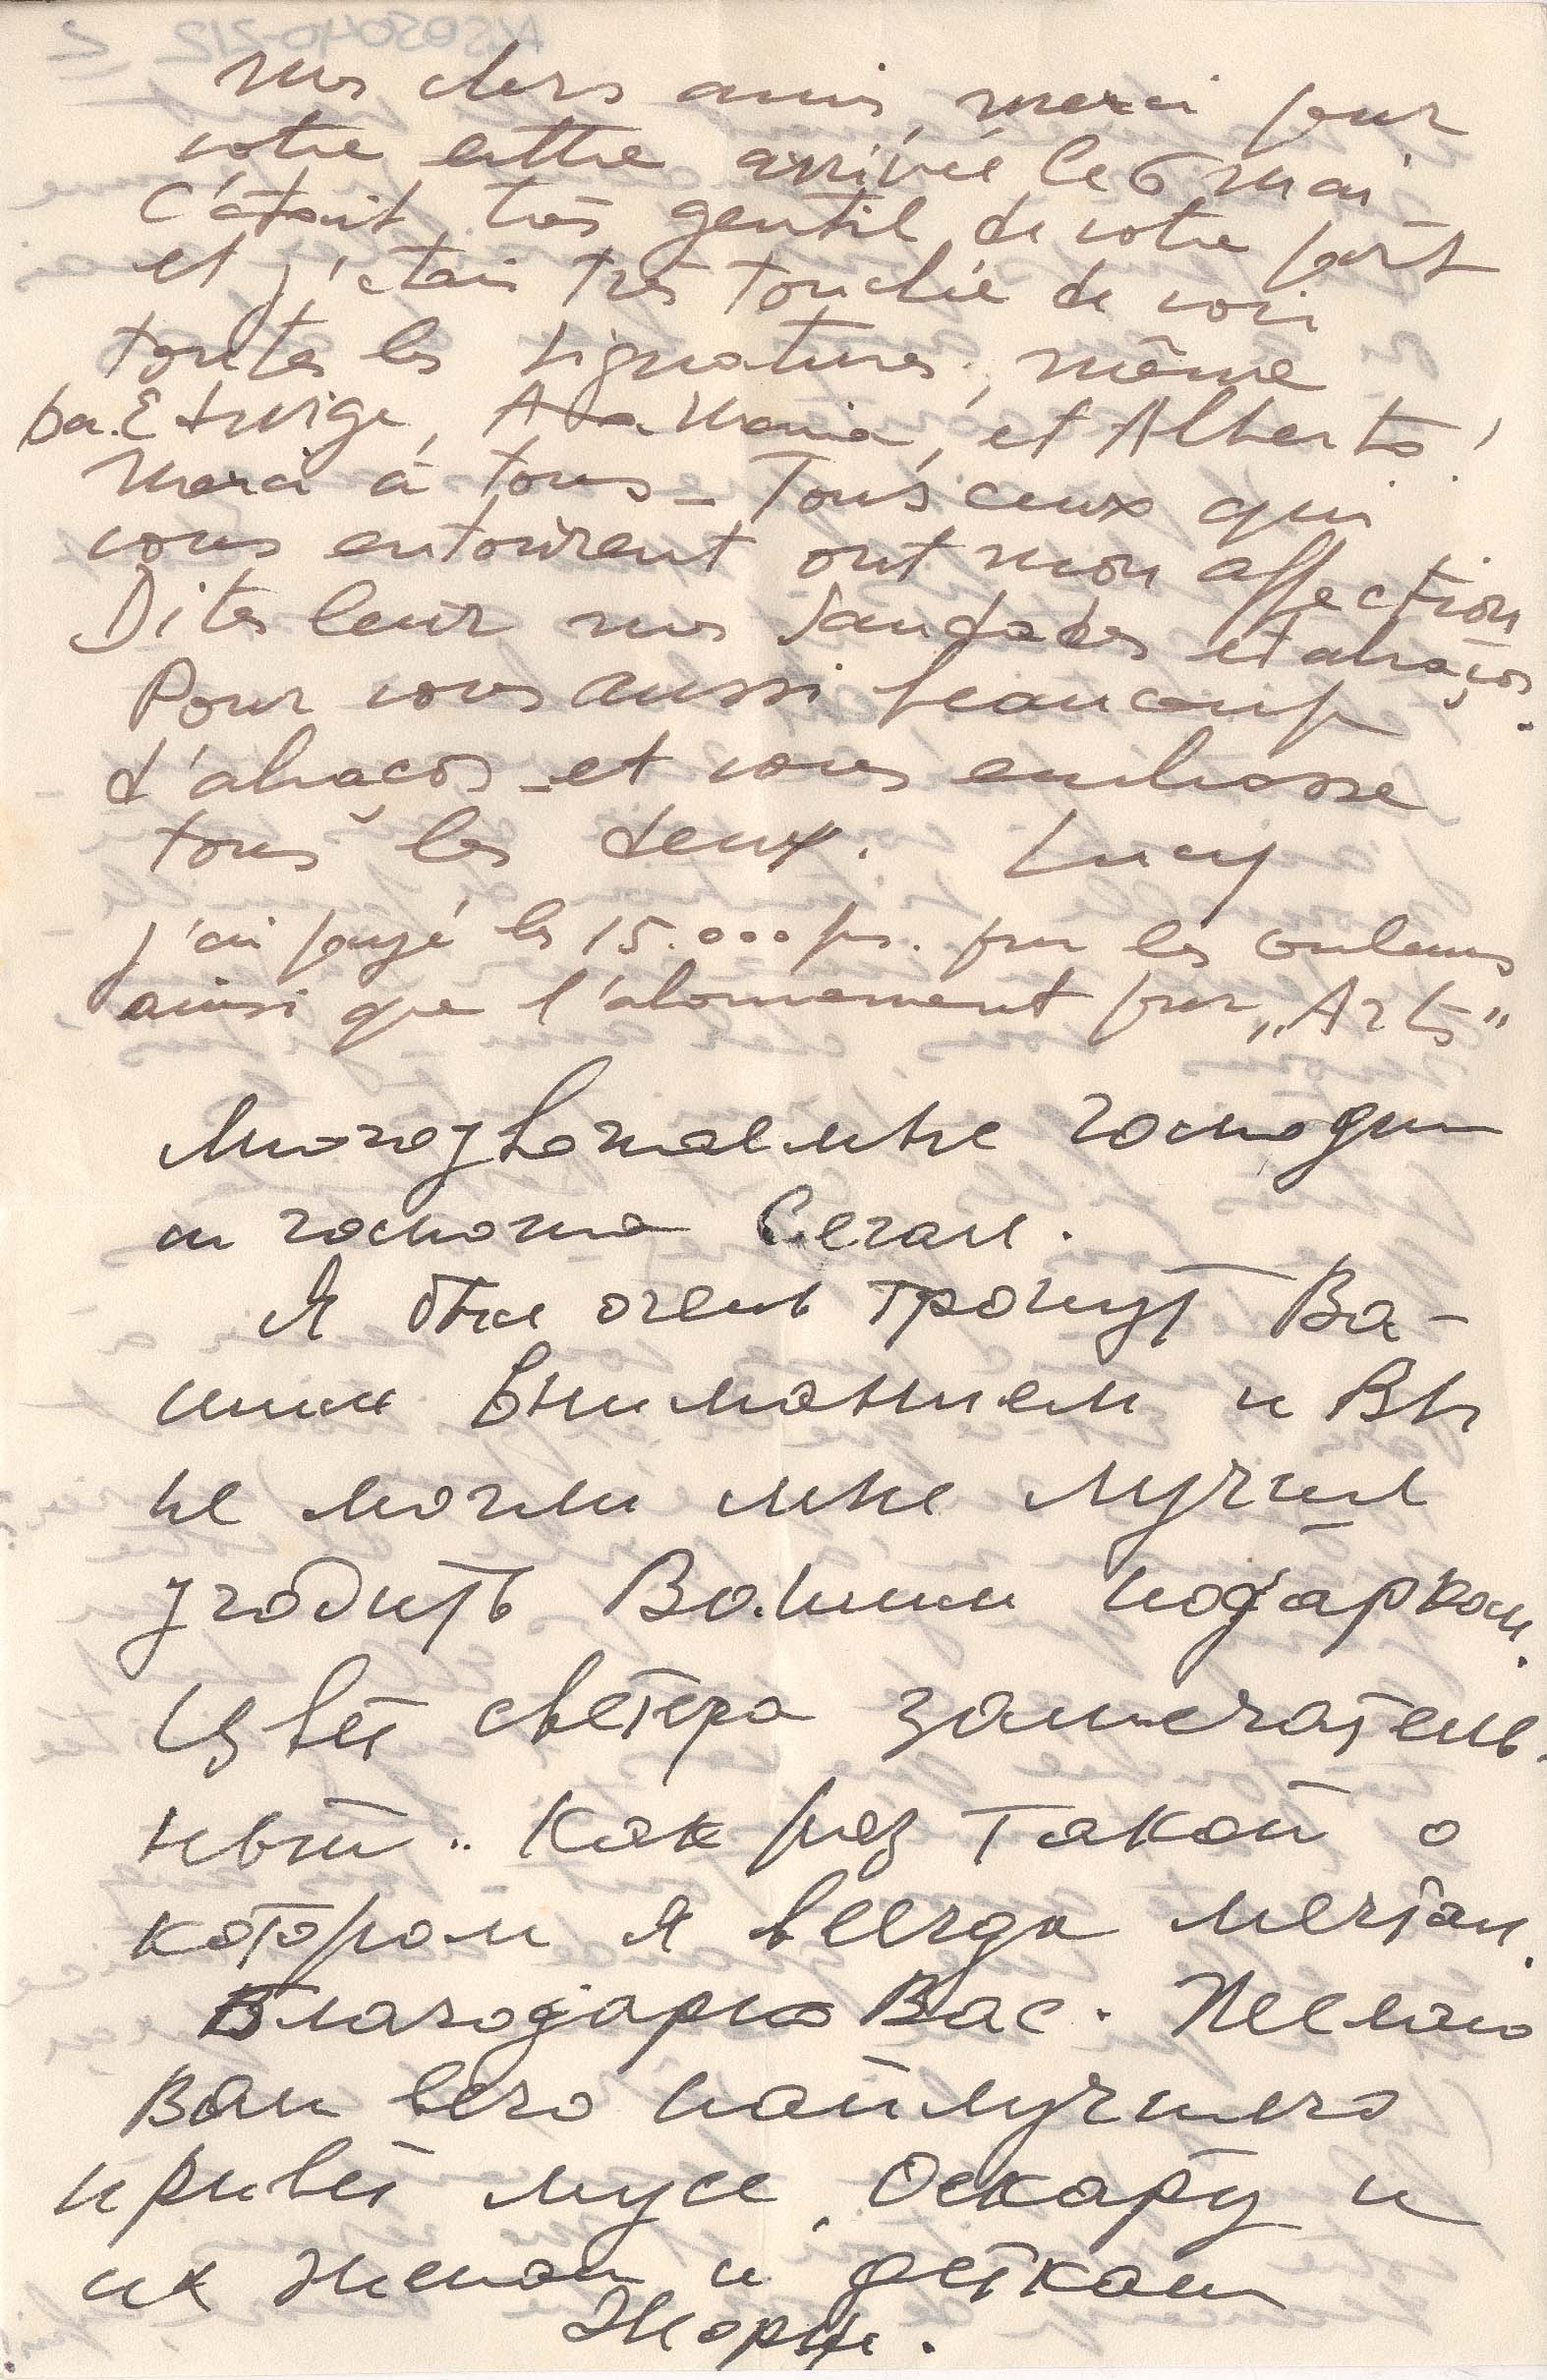 Mes chers amis, merci pour
votre lettre arrivée le 6 mai.
C'était très gentil de votre part
et j'étais très touchée de voir
toutes les signatures, même
Da. Eduvige, Ana Maria, et Alberto!
Merci à tous – Tous ceux qui
vous entourent ont mon affection
Dites leur mes saudades et abraços.
Pour vous aussi beaucoup
d'abraços – et vous embrasse
tous les deux. Lucy
J'ai payé les 15.000 frs. pour les couleurs
ainsi que l'abonnement pour „Arts"
Многоуважаемые господин
и госпожа Сегал.
Я был очень тронут Ва-
шим вниманием и Вы
не могли мне лучше
угодить Вашим подарком.
Цвет светера замечатель-
ный. Как раз такой о
котором я всегда мечтал.
Благодарю Вас. Желаю
Вам всего наилучшего
привет Мусе, Оскару и
их женам и деткам
Жорж.